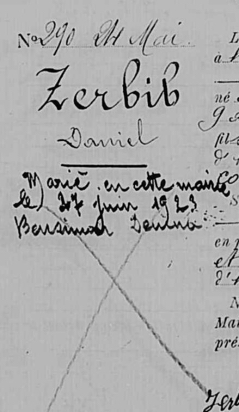 No 290 24 Mai
Zerbib
Daniel
Marié en cette mairie
le 27 Juin 1923
Bensimon
L
a
né
fils
d'
S
en
et
d'
N
Mar
pré
Zerb